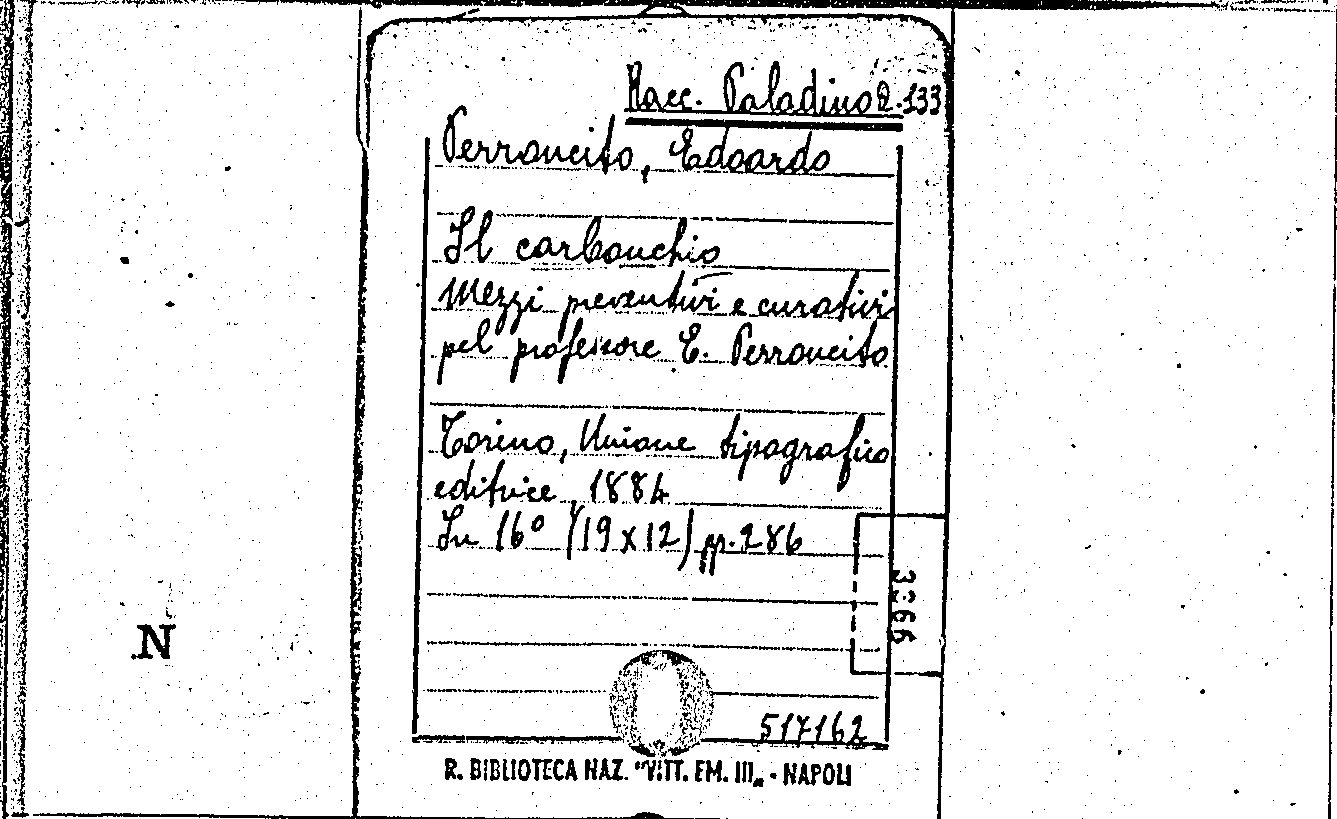 Racc. Paladino Q.133
Perroncito, Edoardo
Il carbonchio
Mezzi preventivi e curativi
pel professore E. Perroncito
Torino, Unione tipografico
editrice, 1884
In 16° (19 x 12) pp. 286
3366
N
517162
R. BIBLIOTECA NAZ. "VITT. EM. III„ - NAPOLI